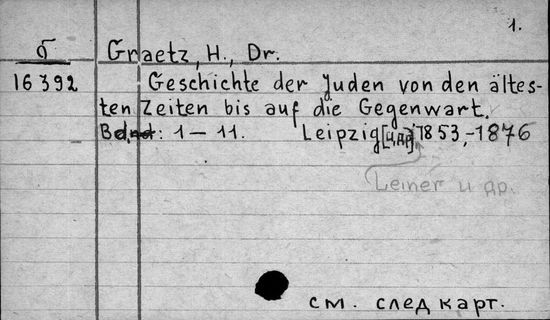 1.
б Graetz, H., Dr.
16392 Geschichte der Juden von den ältes-
ten Zeiten bis auf die Gegenwart.
Bd.: 1 – 11. Leipzig [и др.] 1853,-1876
Leiner и др.
см. след карт.